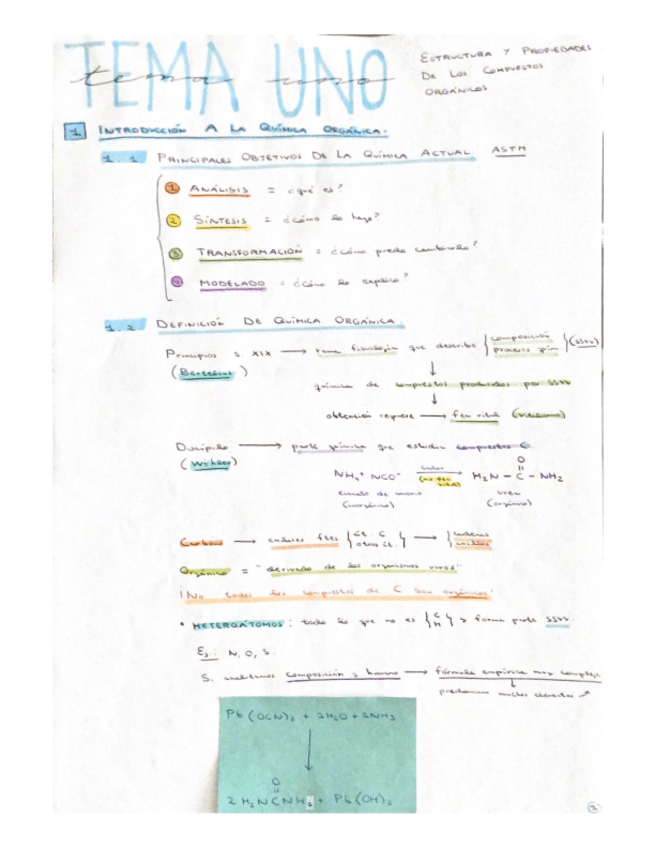 TEMA UNO
tema uno
ESTRUCTURA Y PROPIEDADES
DE LOS COMPUESTOS
ORGÁNICOS
1 INTRODUCCIÓN A LA QUÍMICA ORGÁNICA.
1.1 PRINCIPALES OBJETIVOS DE LA QUÍMICA ACTUAL ASTM
1 ANÁLISIS = ¿qué es?
2 SÍNTESIS = ¿cómo lo hago?
3 TRANSFORMACIÓN = ¿cómo puedo cambiarlo?
4 MODELADO = ¿cómo lo explico?
1.2 DEFINICIÓN DE QUÍMICA ORGÁNICA.
Principios s. XIX → rama fisiología que describe { composición
procesos quím } (ssvv)
(Berzelius)
↓
química de compuestos producidos por ssvv
↓
obtención requiere → fza vital
Discípulo → parte química que estudia compuestos C
(Wöhler)
NH₄⁺ NCO⁻ → H₂N – C – NH₂
O
calor
(no fza
vital)
cianato de amonio
(inorgánico)
urea
(orgánico)
Carbono → enlaces ftes { át. C
otros át. } → { cadenas
anillos
Orgánico = "derivado de los organismos vivos"
¡No todos los compuestos de C son orgánicos!
• HETEROÁTOMOS: todo lo que no es { C
H } y forma parte ssvv.
Ej.: N, O, S.
S. analizamos composición s. humano → fórmula empírica muy compleja
predominan muchos elementos
Pb(OCN)₂ + 2H₂O + 2NH₃
↓
O
2 H₂NCNH₂ + Pb(OH)₂
1